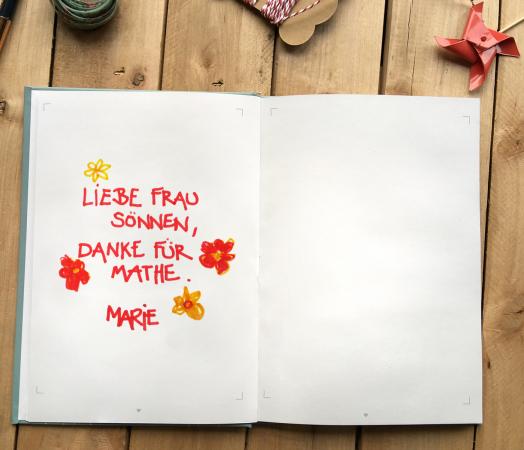 LIEBE FRAU
SÖNNEN,
DANKE FÜR
MATHE.
MARIE